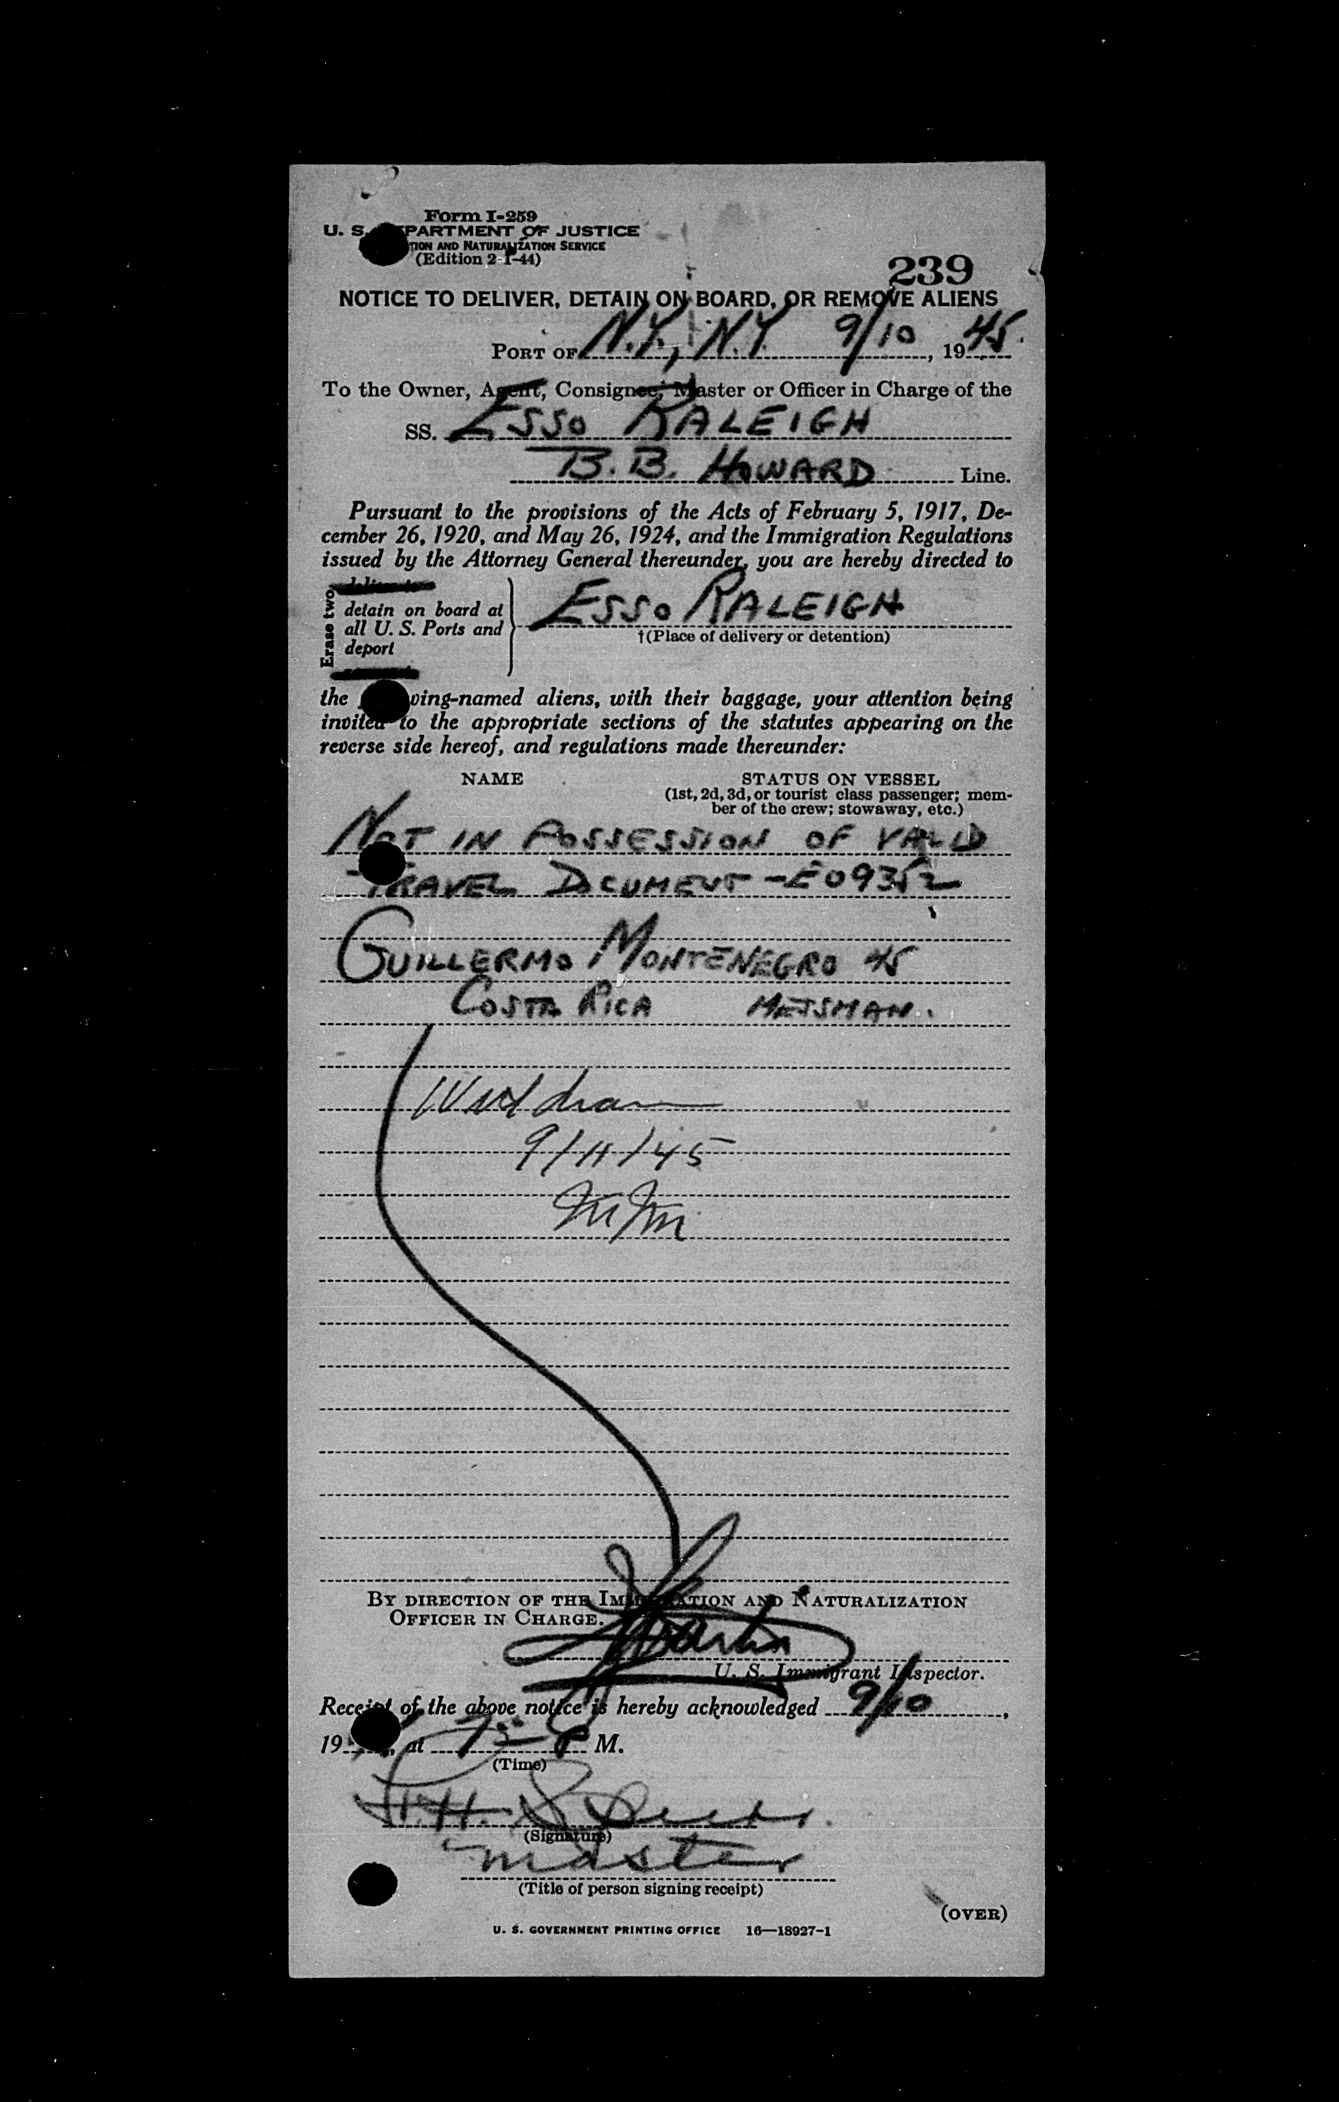 Form I-259
U. S. DEPARTMENT OF JUSTICE
TION AND NATURALIZATION SERVICE
(Edition 2-1-44)
239
NOTICE TO DELIVER, DETAIN ON BOARD, OR REMOVE ALIENS
PORT OF N.Y., N.Y. 9/10, 1945.
To the Owner, Agent, Consignee, Master or Officer in Charge of the
SS. ESSO RALEIGH
B. B. HOWARD Line.
Pursuant to the provisions of the Acts of February 5, 1917, De-
cember 26, 1920, and May 26, 1924, and the Immigration Regulations
issued by the Attorney General thereunder, you are hereby directed to
Erase two
detain on board at
all U. S. Ports and
deport
ESSO RALEIGH
†(Place of delivery or detention)
the wing-named aliens, with their baggage, your attention being
invited to the appropriate sections of the statutes appearing on the
reverse side hereof, and regulations made thereunder:
NAME STATUS ON VESSEL
(1st, 2d, 3d, or tourist class passenger; mem-
ber of the crew; stowaway, etc.)
NOT IN POSSESSION OF VALID
TRAVEL DOCUMENT - E09352
GUILLERMO MONTENEGRO 45
COSTA RICA MESSMAN.
Withdrawn
9/11/45
BY DIRECTION OF THE IMMIGRATION AND NATURALIZATION
OFFICER IN CHARGE.
U. S. Immigrant Inspector.
Receipt of the above notice is hereby acknowledged 9/10,
19, at P M.
(Time)
(Signature)
Master
(Title of person signing receipt)
(OVER)
U. S. GOVERNMENT PRINTING OFFICE 16—18927-1